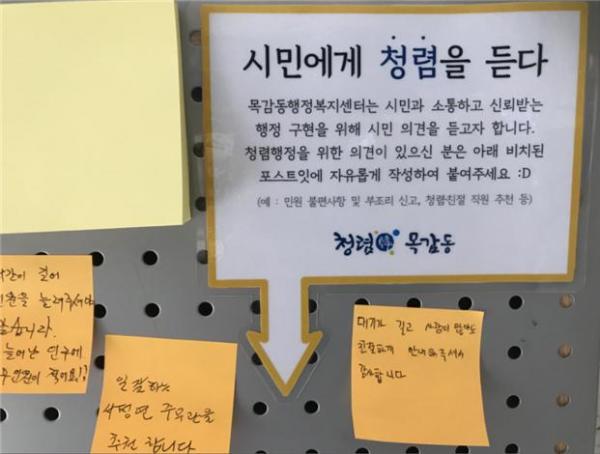 시민에게 청렴을 듣다
목감동행정복지센터는 시민과 소통하고 신뢰받는
행정 구현을 위해 시민 의견을 듣고자 합니다.
청렴행정을 위한 의견이 있으신 분은 아래 비치된
포스트잇에 자유롭게 작성하여 붙여주세요 :D
(예 : 민원 불편사항 및 부조리 신고, 청렴친절 직원 추천 등)
청렴 목감동
걸어
늘려주셔야
늘어난 인구에
적어요!!
일 잘하는
주무관을
추천 합니다
대기가 길고 사람이 많아도
친절하게 안내해주셔서
감사합니다